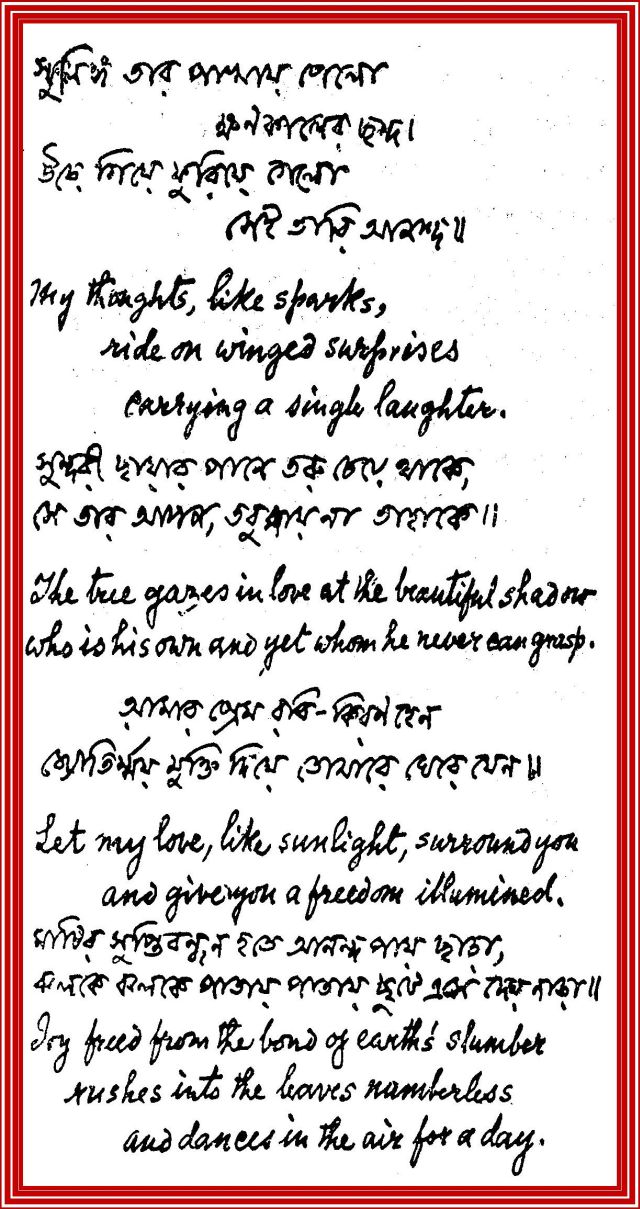 স্ফুলিঙ্গ তার পাখায় পেলো
ক্ষণকালের ছন্দ।
উড়ে গিয়ে ফুরিয়ে গেলো
সেই তারি আনন্দ॥
My thoughts, like sparks,
ride on winged surprises
carrying a single laughter.
সুন্দরী ছায়ার পানে তরু চেয়ে থাকে,
সে তার আপন, তবু পায় না তাহাকে॥
The tree gazes in love at the beautiful shadow
who is his own and yet whom he never can grasp.
আমার প্রেম রবি-কিরণ হেন
জ্যোতির্ম্ময় মুক্তি দিয়ে তোমারে ঘেরে যেন॥
Let my love, like sunlight, surround you
and give you a freedom illumined.
মাটির সুপ্তিবন্ধন হতে আনন্দ পায় ছাড়া,
ঝলকে ঝলকে পাতায় পাতায় ছুটে এসে দেয় নাড়া॥
Joy freed from the bond of earth's slumber
rushes into the leaves numberless
and dances in the air for a day.